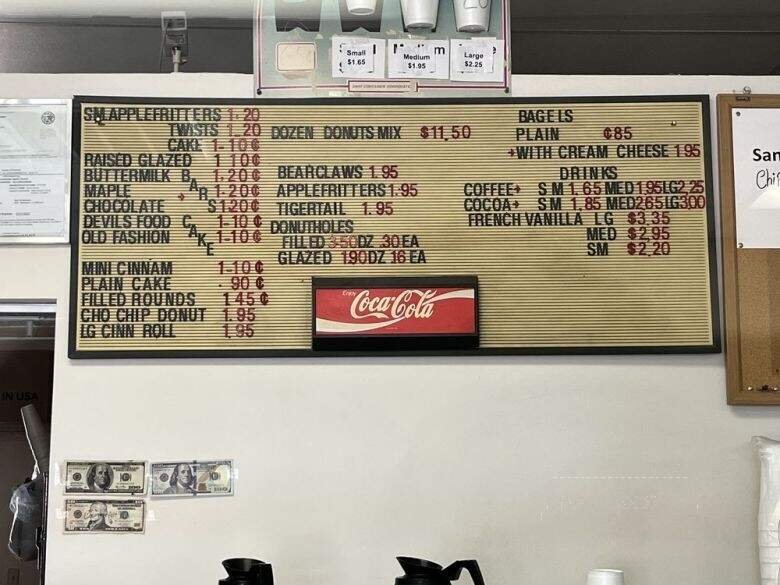 Small
$1.65
Medium
$1.95
Large
$2.25
SMLAPPLEFRITTERS 1.20
TWISTS 1.20
CAKE 1-10¢
RAISED GLAZED 1 10¢
BUTTERMILK BAR 1.20¢
MAPLE BARS 1-20¢
CHOCOLATE 1-20¢
DEVILS FOOD CAKE 1-10¢
OLD FASHION 1-10¢
MINI CINNAM 1-10¢
PLAIN CAKE .90¢
FILLED ROUNDS 1 45¢
CHO CHIP DONUT 1.95
LG CINN ROLL 1.95
DOZEN DONUTS MIX $11.50
BEARCLAWS 1.95
APPLEFRITTERS 1-95
TIGERTAIL 1.95
DONUTHOLES
FILLED 3-50DZ .30 EA
GLAZED 1.90DZ 16 EA
BAGELS
PLAIN ¢85
+WITH CREAM CHEESE 1 95
DRINKS
COFFEE+ SM 1.65 MED 1.95 LG 2.25
COCOA+ SM 1.85 MED 265 LG 300
FRENCH VANILLA LG $3.35
MED $2.95
SM $2.20
Enjoy
Coca-Cola
San
Chi
IN USA